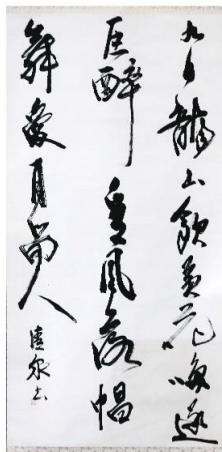 九日龍山飲黃花咲逐
臣醉看風落帽
舞愛月留人
泉书